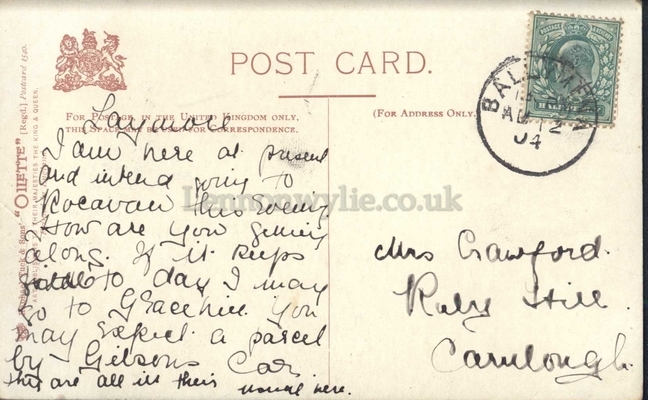 POST CARD.
FOR POSTAGE IN THE UNITED KINGDOM ONLY,
THIS SPACE MAY BE USED FOR CORRESPONDENCE.
(FOR ADDRESS ONLY.)
"OILETTE" [Regd.] Postcard 1540.
ART PUBLISHERS TO THEIR MAJESTIES THE KING & QUEEN.
I am here at present
and intend going to
Rocavan this evening
How are you getting
along. If it keeps
to day I may
go to Gracehill. You
may expect a parcel
by Gibsons Car
this are all in their usual here.
Mrs Crawford.
Ruby Hill
Carnlough.
BALLYMENA
AU 12
04
Lennonwylie.co.uk